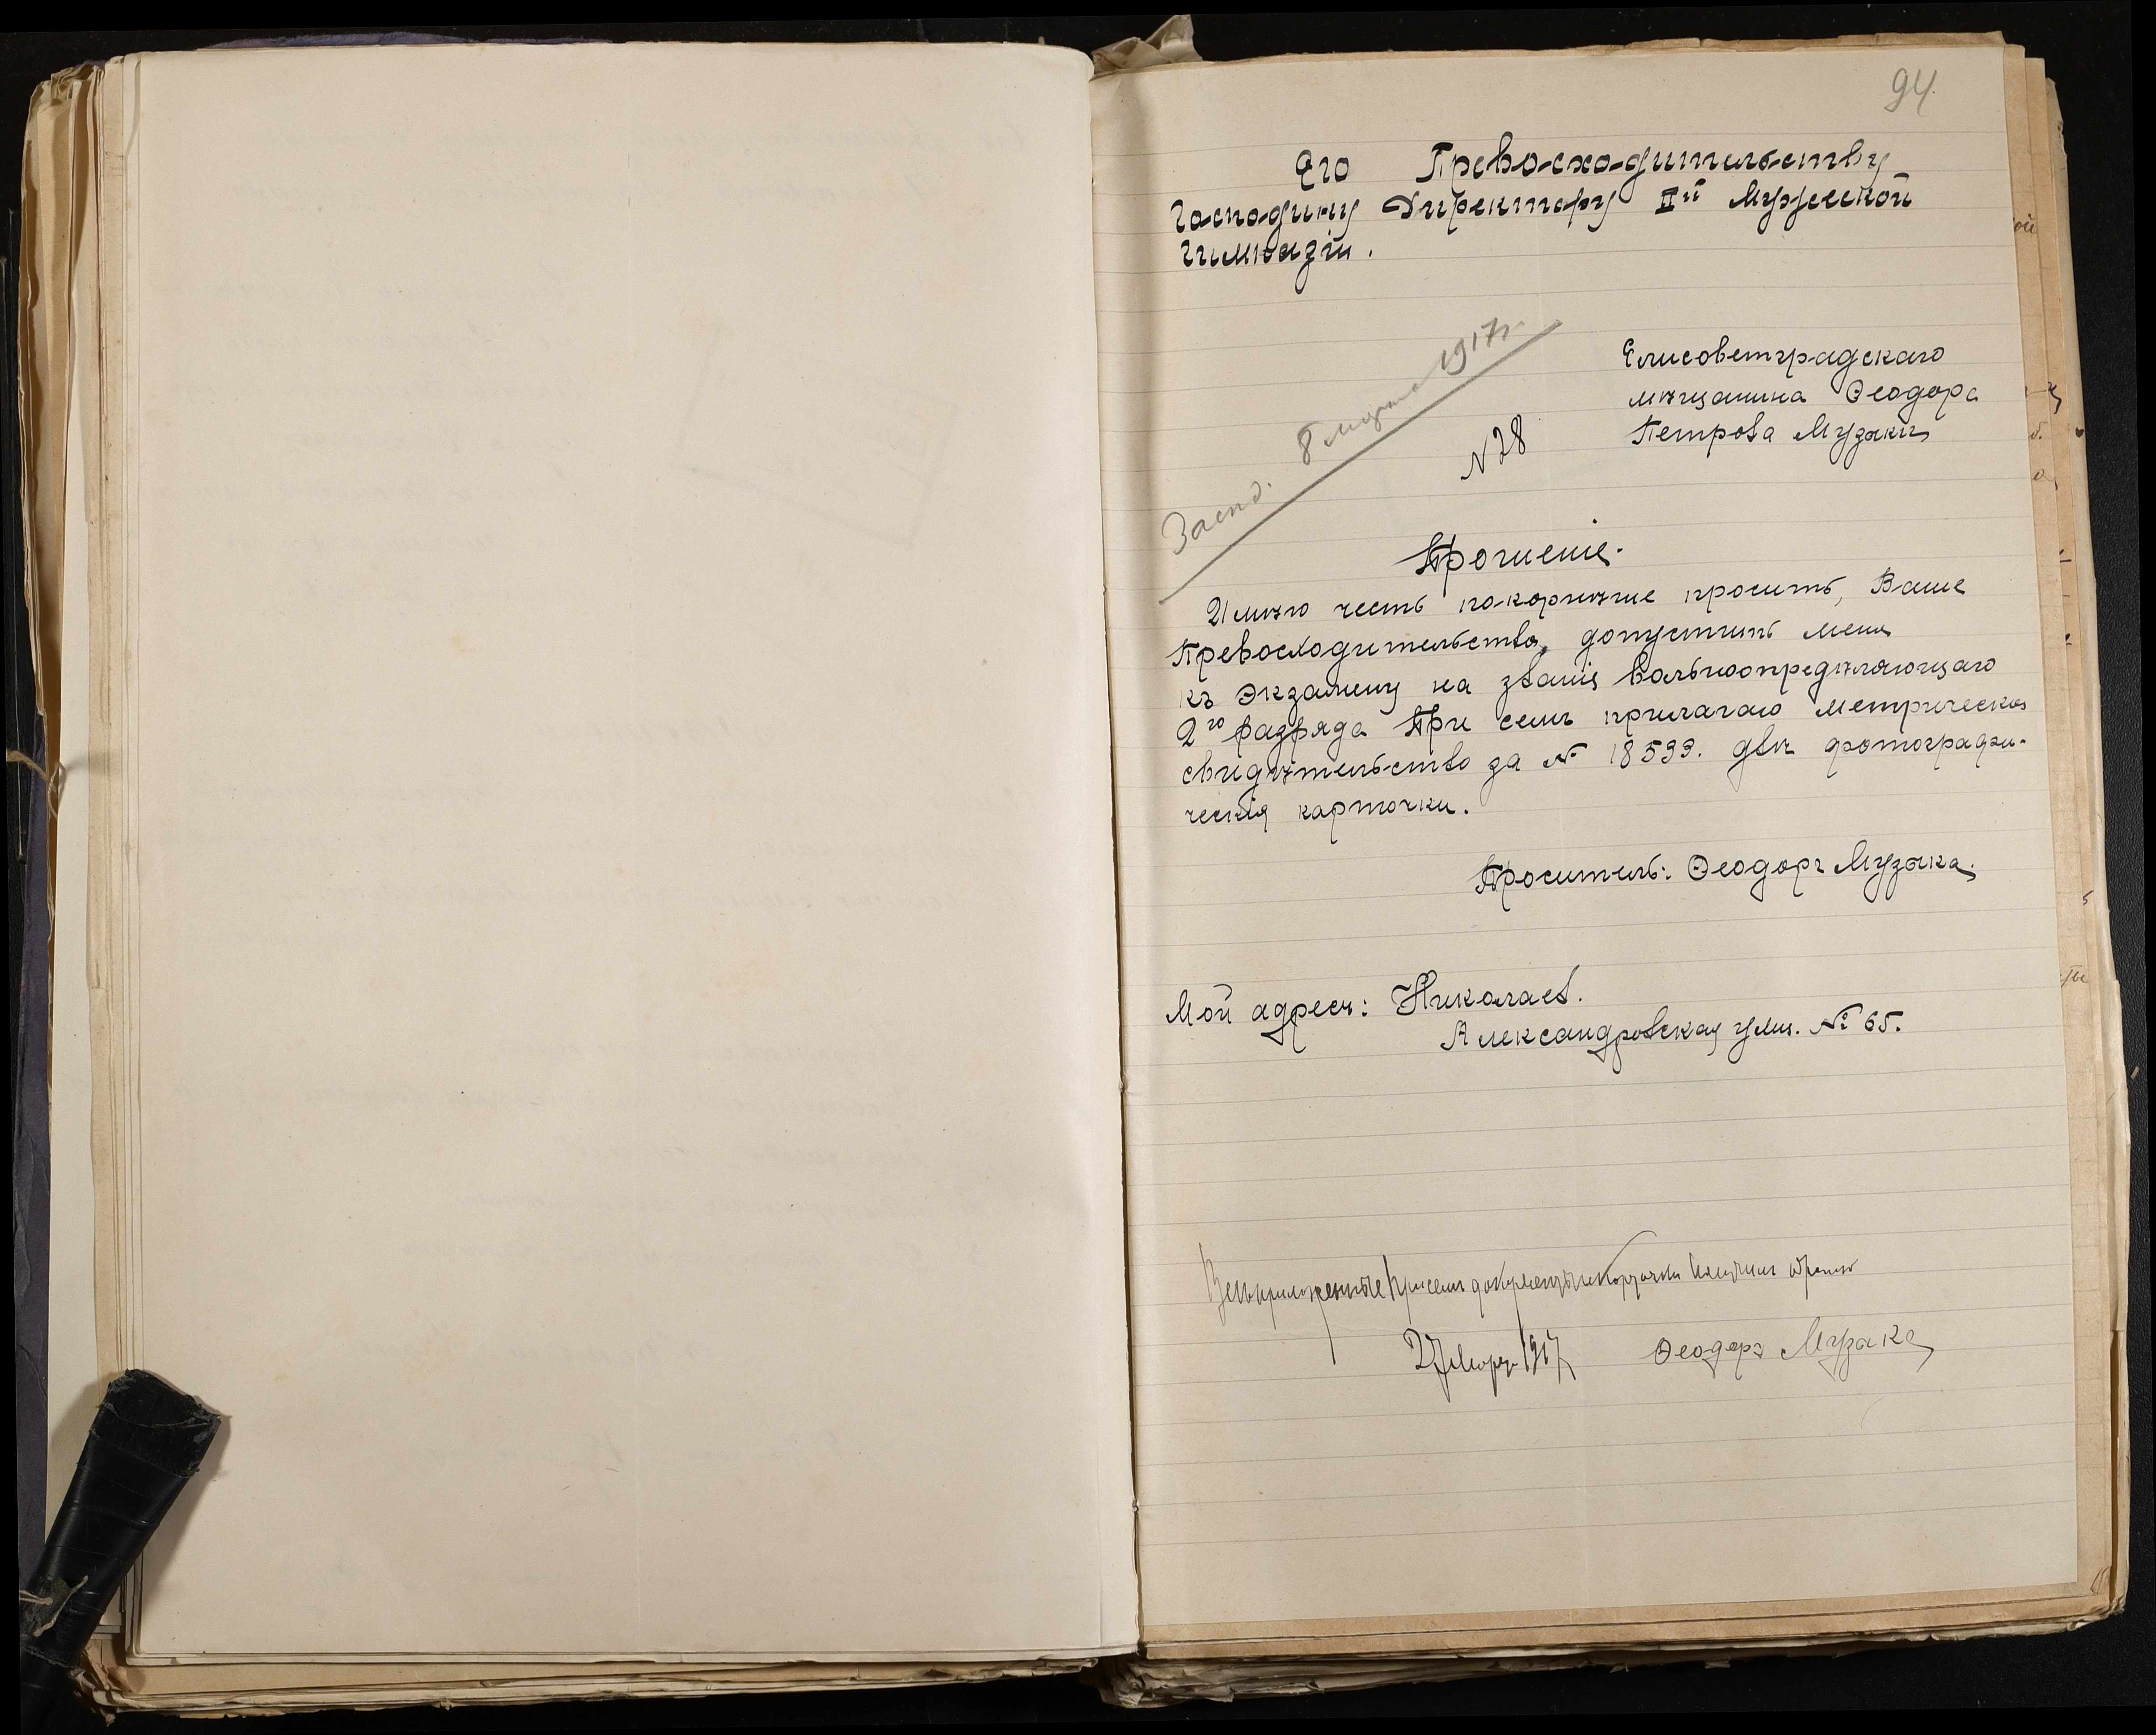 94
Его Превосходительству
Господину Директору IIй Мужеской
Гимназіи.
Засѣд. 8 марта 1917 г.
№ 28
Елисоветградскаго
мѣщанина Ѳеодора
Петрова Музаки
Прошеніе.
Имѣю честь покорнѣше просить, Ваше
Превосходительство, допустить меня
къ Экзамену на званіе Вольноопредѣляющаго
2го разряда При семъ прилагаю метрическое
свидѣтельство за № 18533. двѣ фотографи-
ческія карточки.
Проситель: Ѳеодоръ Музака.
Мой адресъ: Николаев.
Александровская улиц. № 65.
приложенные при семъ документы и карточки получилъ обратно
27 Март 1917 Ѳеодоръ Музака